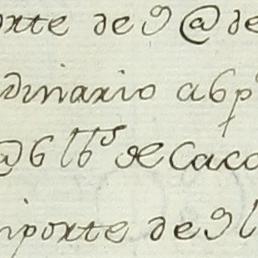 orte de 9 @ de
dinario a 6 p^s
@ 6 lb^s de Caca
mporte de 9 l